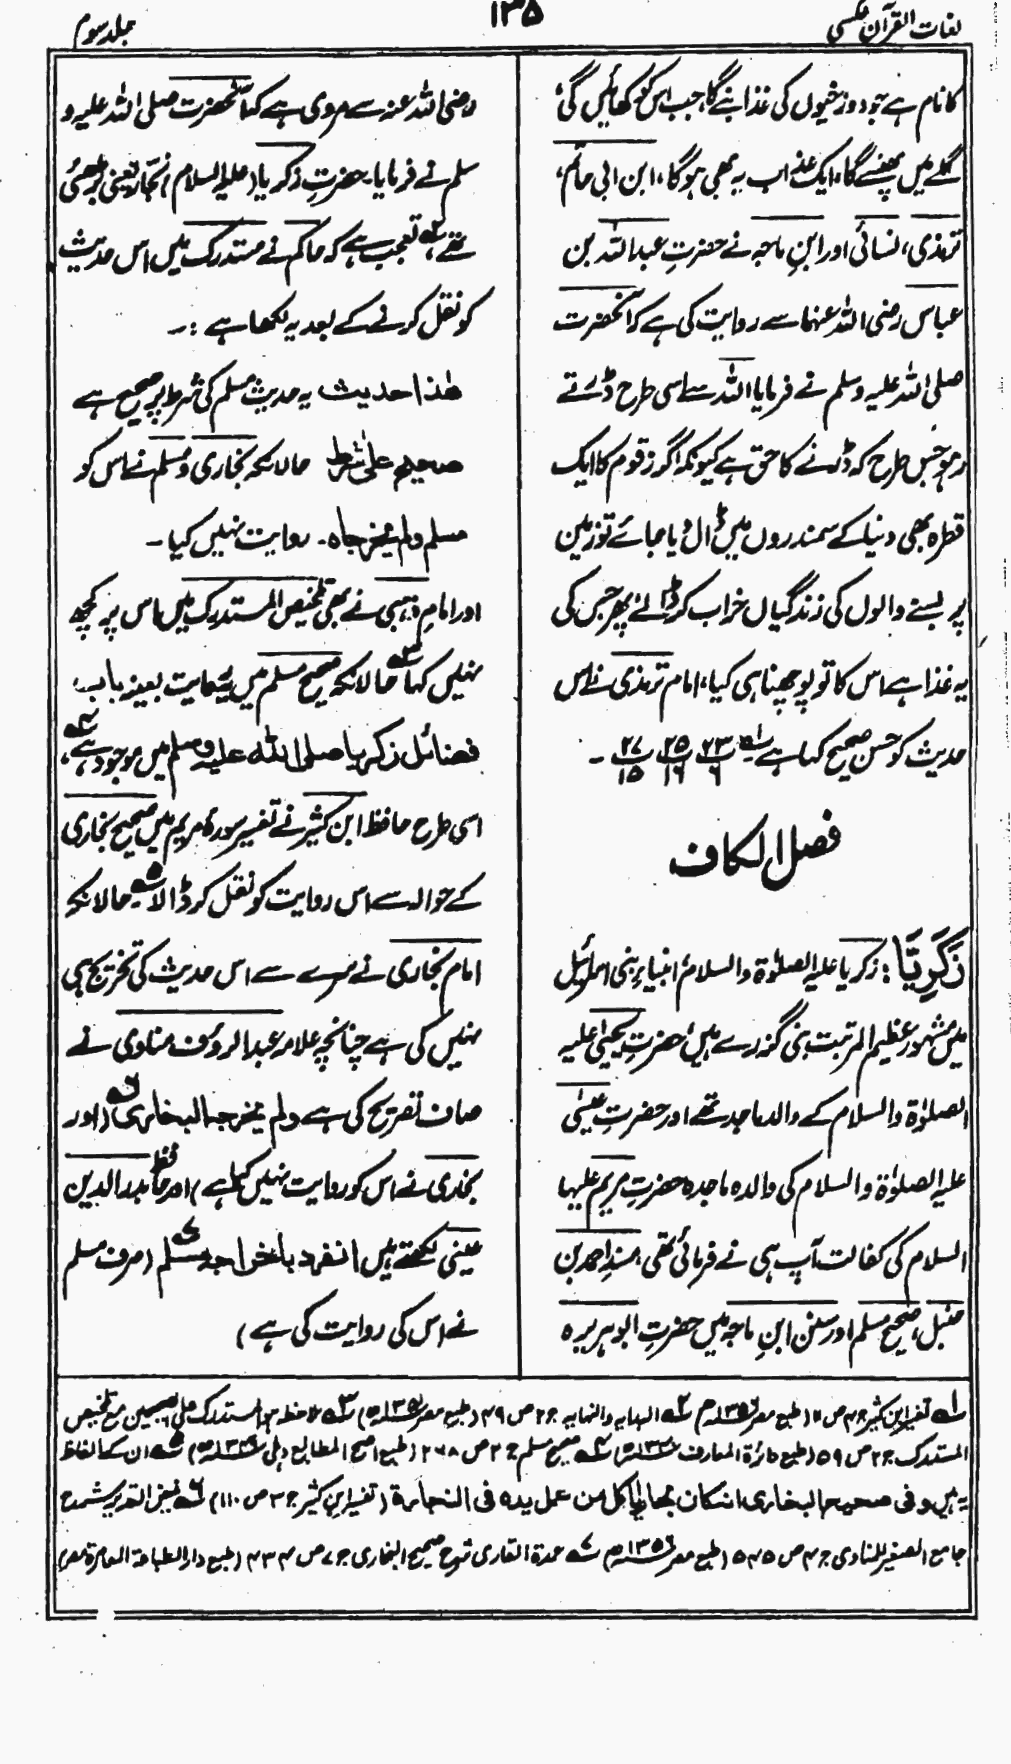 لغات القرآن عکسی
۱۳۵
جلد سوم
کا نام ہے جو دوزخیوں کی غذا بنے گا، جب اس کو کھائیں گی،
گلے میں پھنسے گا، ایک عذاب یہ بھی ہوگا، ابن ابی حاتم،
ترمذی، نسائی اور ابنِ ماجہ نے حضرتِ عبداللہ بن
عباس رضی اللہ عنہما سے روایت کی ہے کہ آنحضرت
صلی اللہ علیہ وسلم نے فرمایا اللہ سے اسی طرح ڈرتے
رہو جس طرح کہ ڈرنے کا حق ہے کیونکہ اگر زقوم کا ایک
قطرہ بھی دنیا کے سمندروں میں ڈال دیا جائے تو زمین
پر بسنے والوں کی زندگیاں خراب کر ڈالے پھر جس کی
یہ غذا ہے اس کا تو پوچھنا ہی کیا، امام ترمذی نے اس
حدیث کو حسن صحیح کہا ہے لہ ۲۳/۶ ۲۵/۱۶ ۲۷/۱۵ ۔
فصل الکاف
زَکَرِیَّا : زکریا علیہ الصلوٰۃ والسلام انبیاء بنی اسرائیل
میں مشہور عظیم المرتبت نبی گزرے ہیں، حضرتِ یحییٰ علیہ
الصلوٰۃ والسلام کے والد ماجد تھے اور حضرتِ عیسیٰ
علیہ الصلوٰۃ والسلام کی والدہ ماجدہ حضرتِ مریم علیہا
السلام کی کفالت آپ ہی نے فرمائی تھی، مسندِ احمد بن
حنبل، صحیح مسلم اور سنن ابنِ ماجہ میں حضرتِ ابو ہریرہ
رضی اللہ عنہ سے مروی ہے کہ آنحضرت صلی اللہ علیہ و
سلم نے فرمایا۔ حضرتِ زکریا (علیہ السلام) نجار یعنی بڑھئی
تھے، ۲ے تعجب ہے کہ حاکم نے مستدرک میں اس حدیث
کو نقل کرنے کے بعد یہ لکھا ہے :۔
ھٰذا حدیث یہ حدیث مسلم کی شرط پر صحیح ہے
صحیح علیٰ شرط حالانکہ بخاری و مسلم نے اس کو
مسلم ولم یخرجاہ۔ روایت نہیں کیا۔
اور امامِ ذہبی نے بھی تلخیص المستدرک میں اس پر کچھ
نہیں کہا ۳ے حالانکہ صحیح مسلم میں یہ روایت بعینہ باب
فضائل زکریا صلی اللہ علیہ وسلم میں موجود ہے، ۴ے
اسی طرح حافظ ابن کثیر نے تفسیر سورہ مریم میں صحیح بخاری
کے حوالہ سے اس روایت کو نقل کر ڈالا ۵ے حالانکہ
امام بخاری نے سرے سے اس حدیث کی تخریج ہی
نہیں کی ہے چنانچہ علامہ عبدالرؤف مناوی نے
صاف تصریح کی ہے ولم یخرجہ البخاری ۶ے (اور
بخاری نے اس کو روایت نہیں کیا ہے) اور حافظ بدرالدین
عینی لکھتے ہیں انفرد باخراجہ مسلم ۷ے (صرف مسلم
نے اس کی روایت کی ہے)
۱ے تفسیر ابن کثیر ج ۴ ص (طبع مصر ۱۳۵۶ھ) ۲ے البدایہ والنہایہ ج ۲ ص ۴۹ (طبع مصر ۱۳۵۱ھ) ۳ے ملاحظہ ہو المستدرک علی الصحیحین مع تلخیص
المستدرک ج ۲ ص ۵۹ (طبع دائرۃ المعارف) ۴ے صحیح مسلم ج ۲ ص ۲۶۸ (طبع اصح المطابع دہلی) ۵ے ان کے الفاظ
یہ ہیں وفی صحیح البخاری انہ کان نجارا یاکل من عمل یدہ فی النجارۃ (تفسیر ابن کثیر ج ۳ ص ۱۱۰) ۶ے فیض القدیر شرح
جامع الصغیر للمناوی ج ۴ ص ۵۴۵ (طبع مصر ۱۳۵۶ھ) ۷ے عمدۃ القاری شرح صحیح البخاری ج ۷ ص ۴۳۴ (طبع دار الطباعۃ العامرۃ مصر)